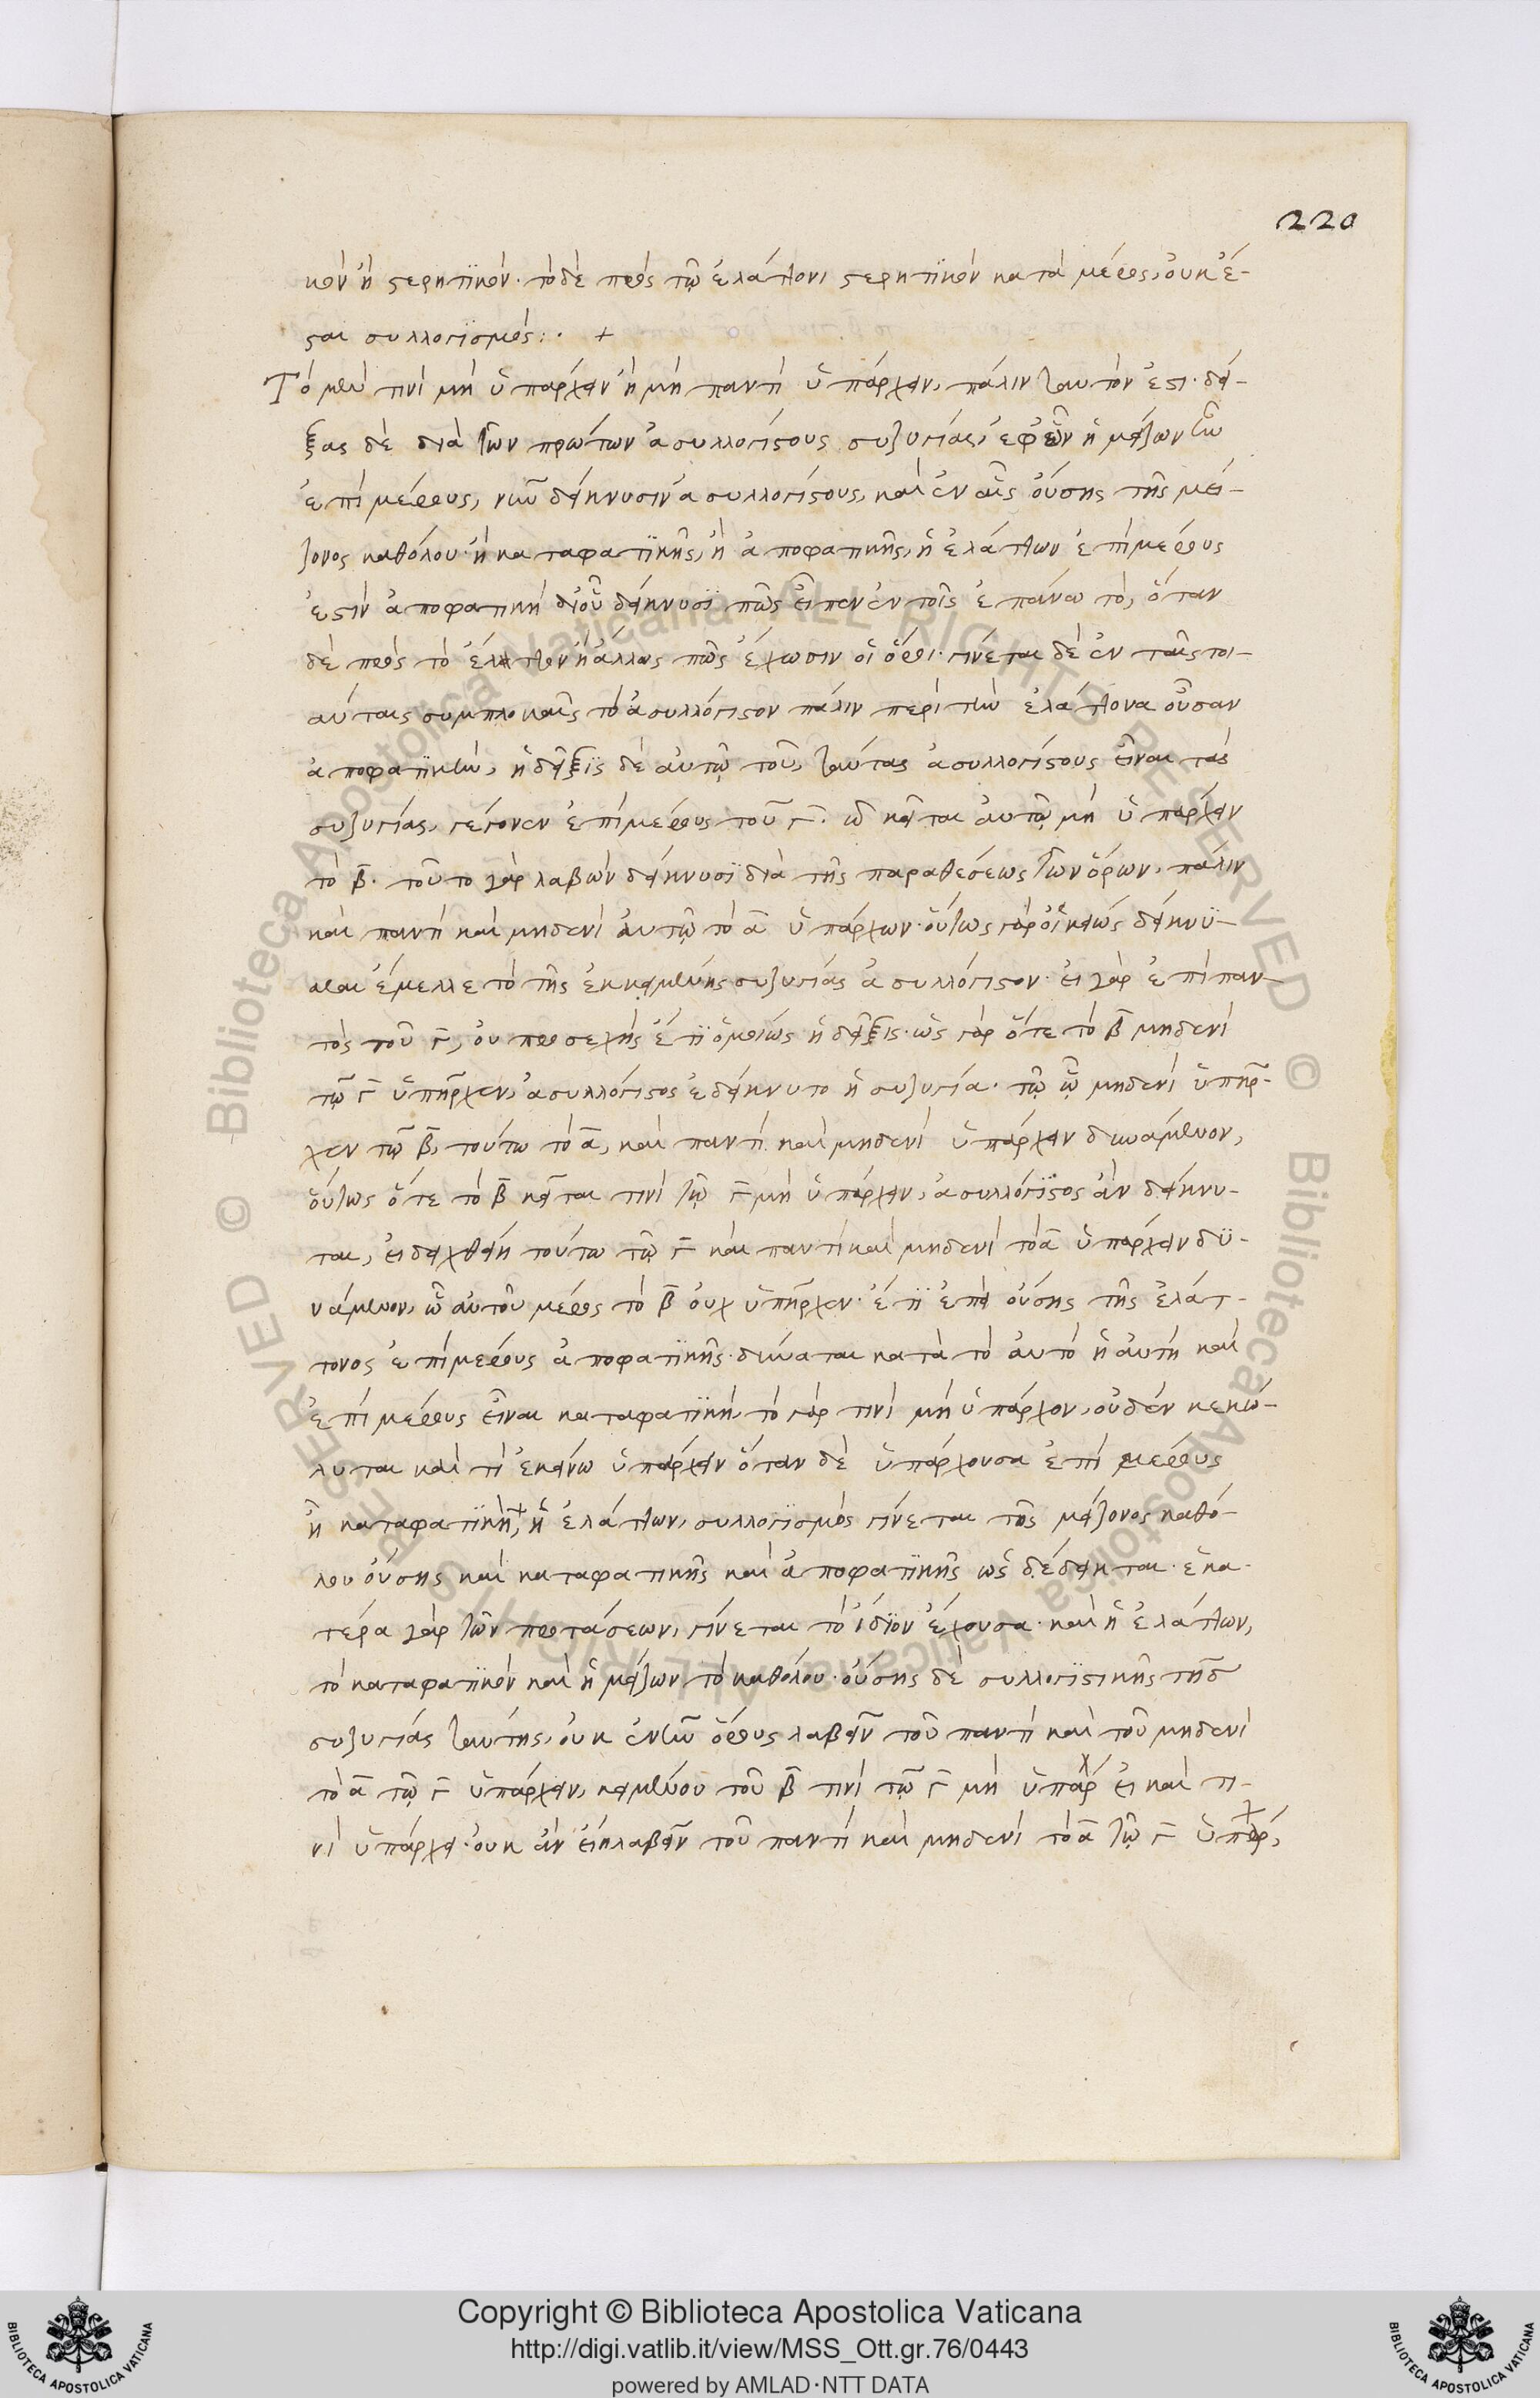 220
κὸν ἢ στερητικόν· τὸ δὲ πρὸς τῷ ἐλάττονι στερητικὸν κατὰ μέρος, οὐκ ἔ-
σται συλλογισμός:· +
Τὸ μὲν τινὶ μὴ ὑπάρχειν ἢ μὴ παντὶ ὑπάρχειν, πάλιν ταυτόν ἐστι· δεί-
ξας δὲ διὰ τῶν πρώτων ἀσυλλογίστους συζυγίας, ἐφ' ὧν ἡ μείζων ἦν
ἐπὶ μέρους, νῦν δείκνυσιν ἀσυλλογίστους, καὶ ἐν αἷς οὔσης τῆς μεί-
ζονος καθόλου· ἢ καταφατικῆς, ἢ ἀποφατικῆς, ἡ ἐλάττων ἐπὶ μέρους
ἐστὶν ἀποφατική δι' οὗ δείκνυσι πῶς εἶπεν ἐν τοῖς ἐπάνω τό, ὅταν
δὲ πρὸς τὸ ἔλαττον ἢ ἄλλως πῶς ἔχωσιν οἱ ὅροι· γίνεται δὲ ἐν ταῖς τοι-
αύταις συμπλοκαῖς τὸ ἀσυλλόγιστον πάλιν περὶ τὴν ἐλάττονα οὖσαν
ἀποφατικήν, ἡ δεῖξις δὲ αὐτῷ τοῦ, ταύτας ἀσυλλογίστους εἶναι τὰς
συζυγίας, γέγονεν ἐπὶ μέρους τοῦ Γ· ᾧ κεῖται αὐτῷ μὴ ὑπάρχειν
τὸ β· τοῦτο γὰρ λαβὼν δείκνυσι διὰ τῆς παραθέσεως τῶν ὅρων, πάλιν
καὶ παντὶ καὶ μηδενὶ αὐτῷ τὸ α ὑπάρχων· οὕτως γὰρ οἰκείως δείκνυ-
σθαι ἔμελλε τὸ τῆς ἐκκειμένης συζυγίας ἀσυλλόγιστον· εἰ γὰρ ἐπὶ παν-
τὸς τοῦ Γ, οὐ προσεχὴς ἔτι ὁμοίως ἡ δεῖξις· ὡς γὰρ ὅτε τὸ β μηδενὶ
τῷ Γ ὑπῆρχεν, ἀσυλλόγιστος ἐδείκνυτο ἡ συζυγία· τῷ ᾧ μηδενὶ ὑπῆρ-
χεν τῷ β, τούτω τὸ α, καὶ παντὶ καὶ μηδενὶ ὑπάρχειν δυνάμενον,
οὕτως ὅτε τὸ β κεῖται τινὶ τῷ Γ μὴ ὑπάρχειν, ἀσυλλόγιστος ἂν δείκνυ-
ται, εἰ δειχθείη τούτω τῷ Γ καὶ παντὶ καὶ μηδενὶ τὸ α ὑπάρχειν δυ-
νάμενον, ᾧ αὐτοῦ μέρος τὸ β οὐχ ὑπῆρχεν· ἔτι ἐπεὶ οὔσης τῆς ἐλάτ-
τονος ἐπὶ μέρους ἀποφατικῆς· δύναται κατὰ τὸ αὐτὸ ἡ αὐτὴ καὶ
ἐπὶ μέρους εἶναι καταφατική, τὸ γὰρ τινὶ μὴ ὑπάρχον, οὐδὲν κεκώ-
λυται καὶ τὶ ἐκείνω ὑπάρχειν ὅταν δὲ ὑπάρχουσα ἐπὶ μέρους
ἢ καταφατικὴ, ἡ ἐλάττων, συλλογισμὸς γίνεται τῆς μείζονος καθό-
λου οὔσης καὶ καταφατικῆς καὶ ἀποφατικῆς ὡς δέδεικται· ἑκα-
τέρα γὰρ τῶν προτάσεων, γίνεται τὸ ἴδιον ἔχουσα· καὶ ἡ ἐλάττων,
τὸ καταφατικὸν καὶ ἡ μείζων τὸ καθόλου· οὔσης δὲ συλλογιστικῆς τῆς
συζυγίας ταύτης, οὐκ ἐνῆν ὅρους λαβεῖν τοῦ παντὶ καὶ τοῦ μηδενὶ
τὸ α τῷ Γ ὑπάρχειν, κειμένου τοῦ β τινὶ τῷ Γ μὴ ὑπάρχ εἰ καὶ τι-
νὶ ὑπάρχει· οὐκ ἂν εἴη λαβεῖν τοῦ παντὶ καὶ μηδενὶ τὸ α τῷ Γ ὑπάρχ,
Copyright © Biblioteca Apostolica Vaticana
http://digi.vatlib.it/view/MSS_Ott.gr.76/0443
powered by AMLAD·NTT DATA
BIBLIOTECA APOSTOLICA VATICANA
BIBLIOTECA APOSTOLICA VATICANA
© Biblioteca Apostolica Vaticana ALL RIGHTS RESERVED © Biblioteca Apostolica Vaticana ALL RIGHTS RESERVED